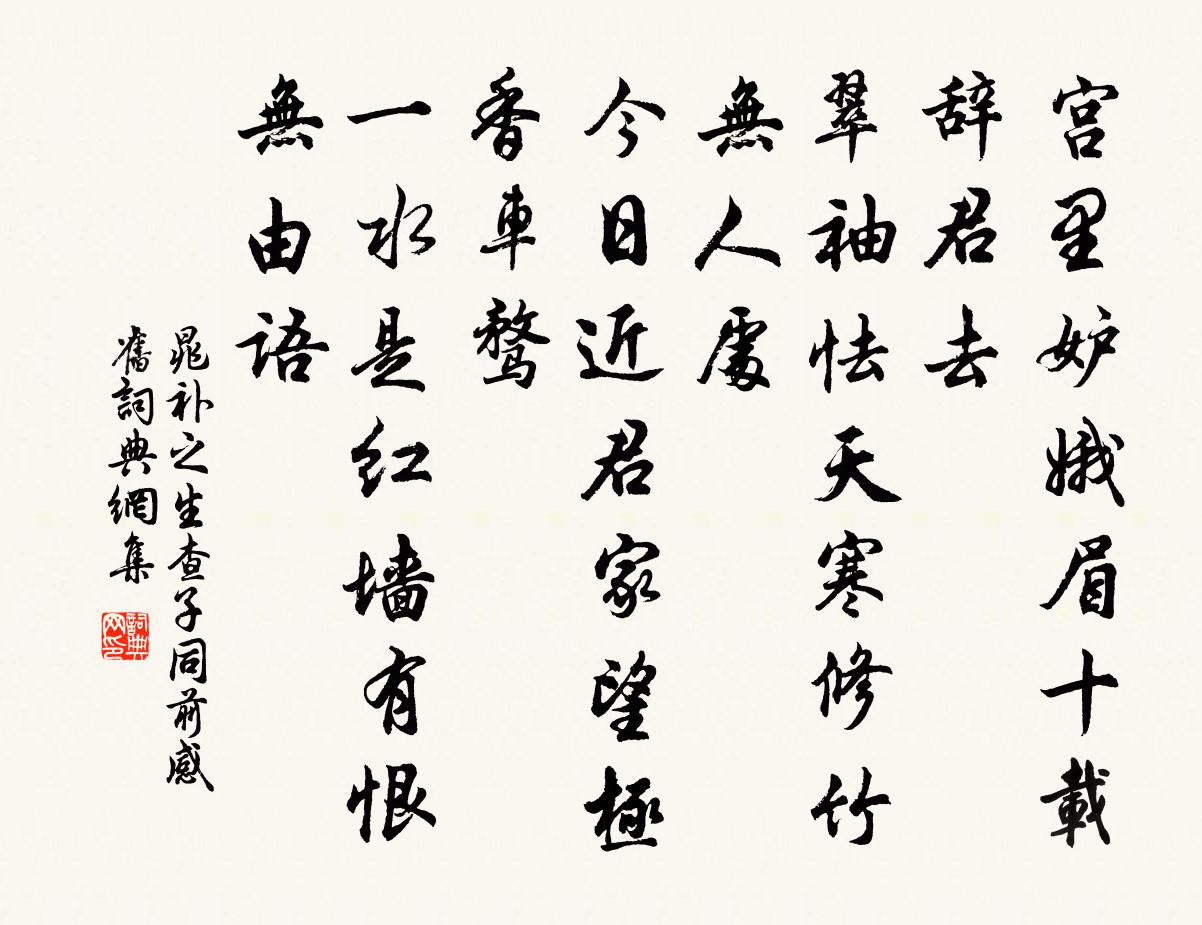 宫里妒娥眉十載
辞君去
翠袖怯天寒修竹
無人處
今日近君家望極
香車鶩
一水是红墙有恨
無由語
晁补之生查子同前感
舊詞典網集
詞典网印